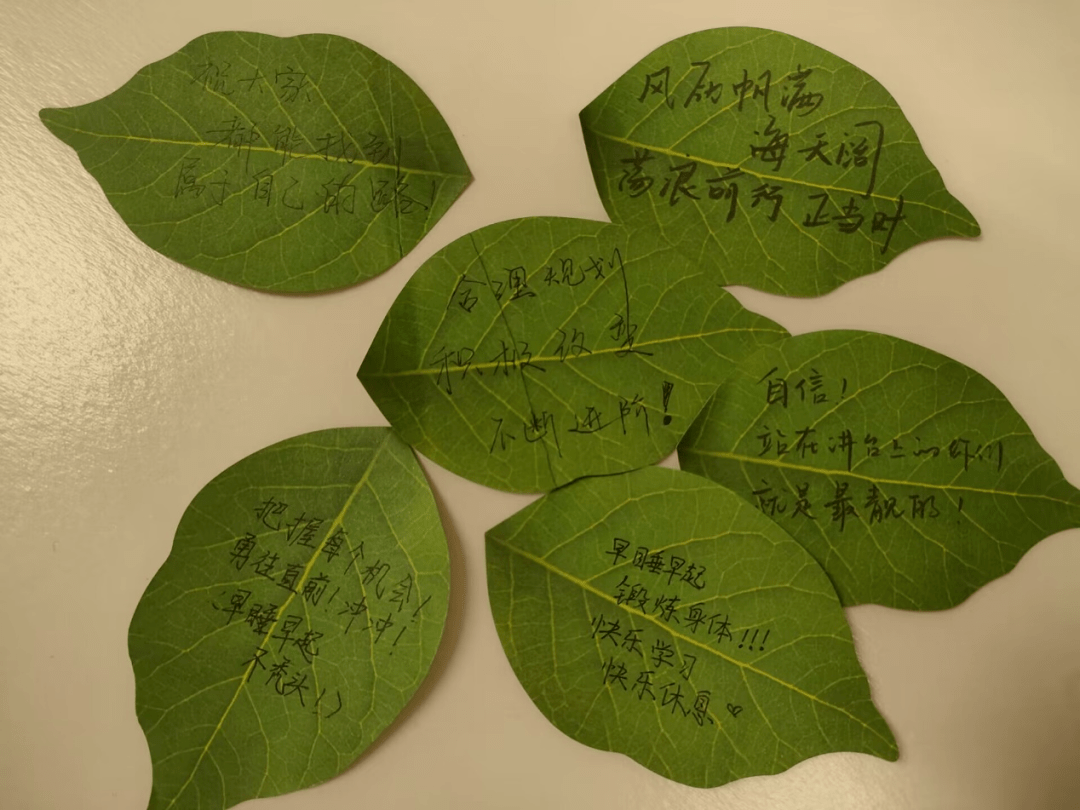 祝大家
都能找到
属于自己的路！
风劲帆满
海天阔
荡浪前行 正当时
合理规划
积极改变
不断进阶！
自信！
站在讲台上的你们
就是最靓的！
把握每个机会！
勇往直前！冲冲！
早睡早起
不秃头！:)
早日睡早起
锻炼身体！！！
快乐学习
快乐休息♡